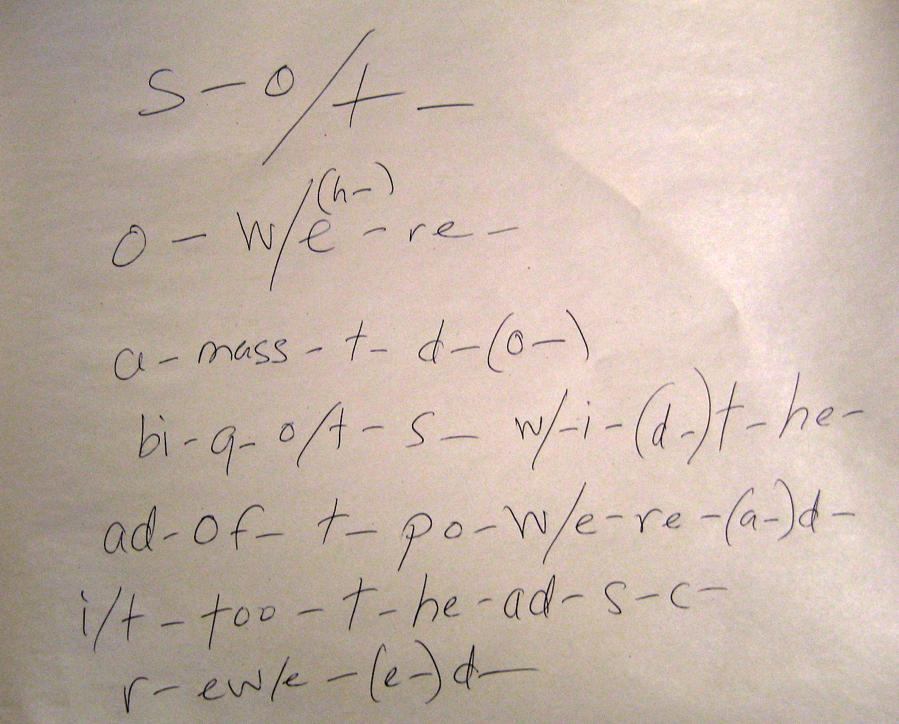 s - o/t -
o - w/e (h-) - re -
a - mass - t - d - (o-)
bi - q - o/t - s - w/-i - (d-) t - he -
ad - of - t - po - w/e - re - (a-) d -
i/t - too - t - he - ad - s - c -
r - ew/e - (e-) d -